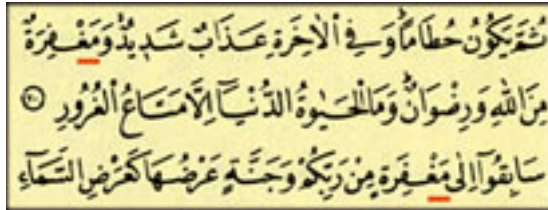 ثُمَّ يَكُونُ حُطَامًا وَفِي الْاٰخِرَةِ عَذَابٌ شَدٖيدٌ وَمَغْفِرَةٌ
مِنَ اللّٰهِ وَرِضْوَانٌ وَمَا الْحَيٰوةُ الدُّنْيَٓا اِلَّا مَتَاعُ الْغُرُورِ ﴿٢٠﴾
سَابِقُٓوا اِلٰى مَغْفِرَةٍ مِنْ رَبِّكُمْ وَجَنَّةٍ عَرْضُهَا كَعَرْضِ السَّمَٓاءِ